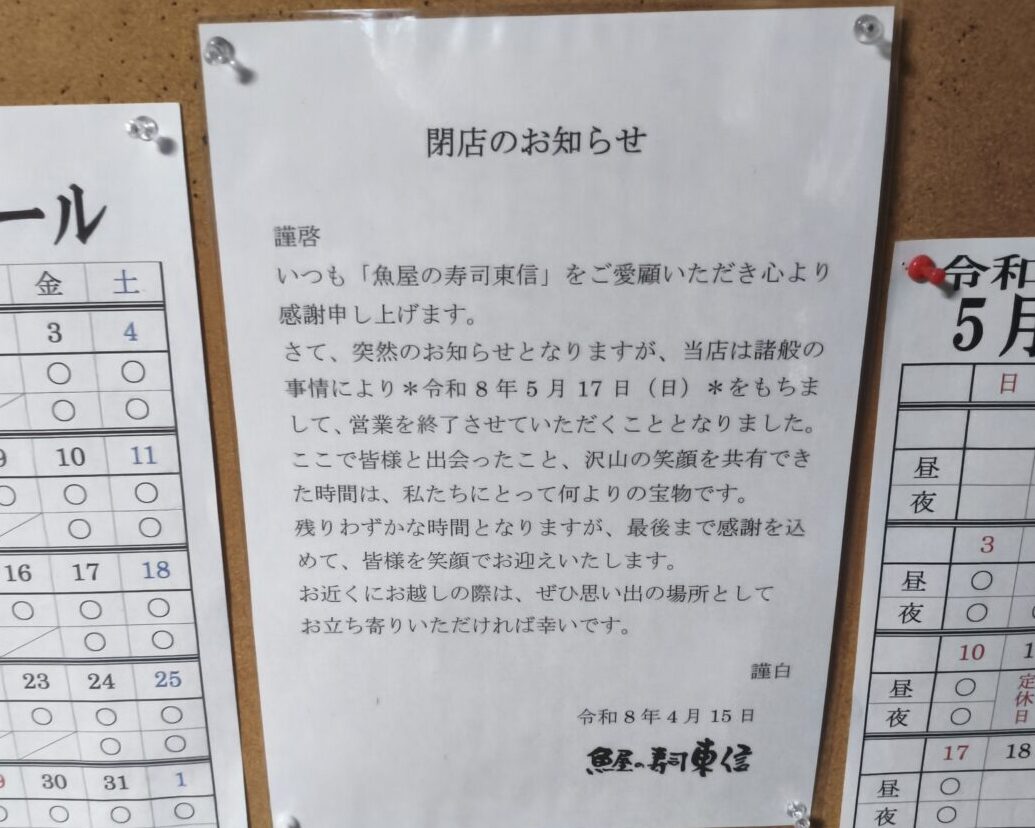 閉店のお知らせ
謹啓
いつも「魚屋の寿司東信」をご愛顧いただき心より
感謝申し上げます。
さて、突然のお知らせとなりますが、当店は諸般の
事情により＊令和8年5月17日（日）＊をもちま
して、営業を終了させていただくこととなりました。
ここで皆様と出会ったこと、沢山の笑顔を共有でき
た時間は、私たちにとって何よりの宝物です。
残りわずかな時間となりますが、最後まで感謝を込
めて、皆様を笑顔でお迎えいたします。
お近くにお越しの際は、ぜひ思い出の場所として
お立ち寄りいただければ幸いです。
謹白
令和8年4月15日
魚屋の寿司東信
ール
金 土
3 4
○ ○
○ ○
9 10 11
○ ○ ○
○ ○
16 17 18
○ ○ ○
○ ○
23 24 25
○ ○ ○
○ ○
30 31 1
○ ○ ○
令和
5月
日
昼
夜
3
昼 ○
夜 ○
10
昼 ○ 定休日
夜 ○
17 18
昼 ○
夜 ○